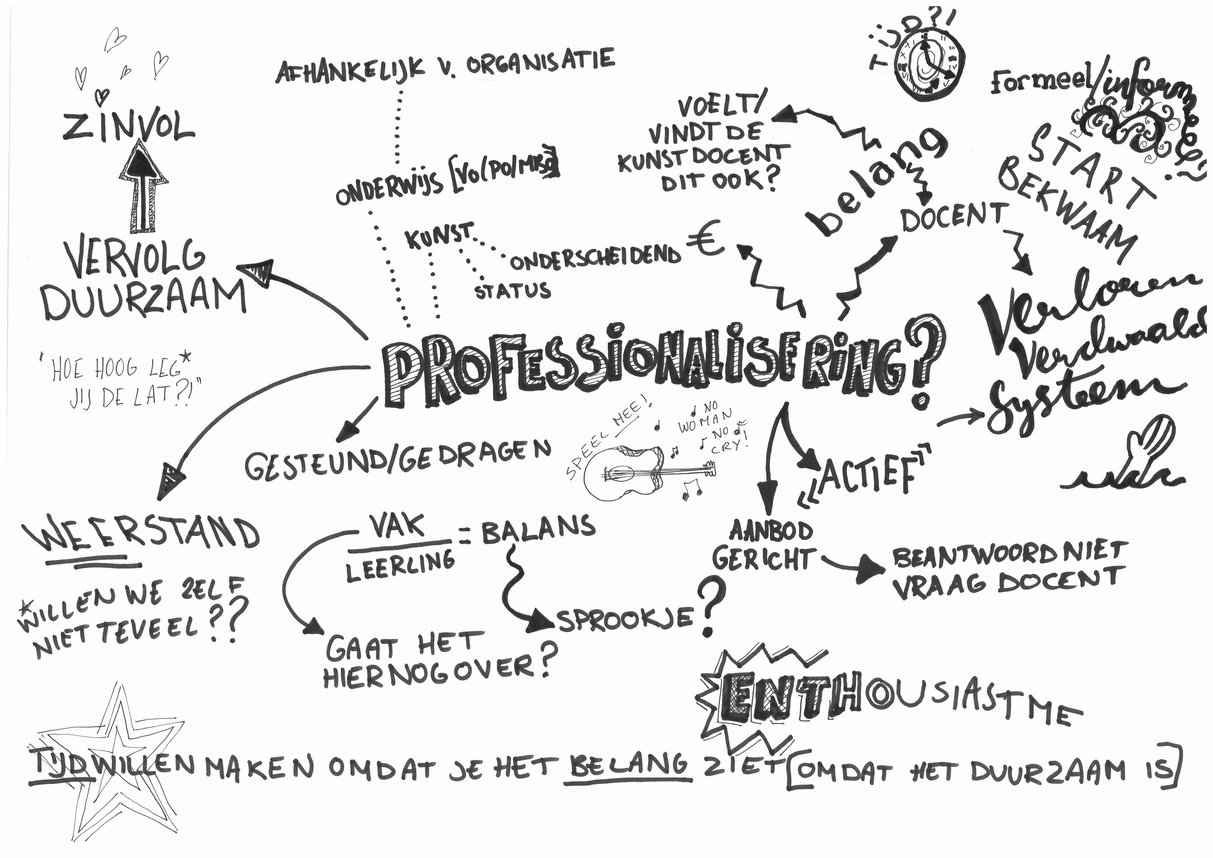 TIJD?!
AFHANKELIJK V. ORGANISATIE
ZINVOL
VERVOLG
DUURZAAM
'HOE HOOG LEG*
JIJ DE LAT?!"
ONDERWIJS [VO/PO/MBO]
KUNST
ONDERSCHEIDEND
STATUS
€
VOELT/
VINDT DE
KUNSTDOCENT
DIT OOK?
belang
DOCENT
Formeel/informeel?
START
BEKWAAM
Verloren
Verdwaald
Systeem
PROFESSIONALISERING?
GESTEUND/GEDRAGEN
SPEEL MEE!
NO
WOMAN
NO
CRY!
"ACTIEF"
WEERSTAND
*WILLEN WE ZELF
NIET TEVEEL??
VAK = BALANS
LEERLING
GAAT HET
HIER NOG OVER?
SPROOKJE?
AANBOD
GERICHT
BEANTWOORD NIET
VRAAG DOCENT
ENTHOUSIASTME
TIJD WILLEN MAKEN OMDAT JE HET BELANG ZIET [OMDAT HET DUURZAAM IS]